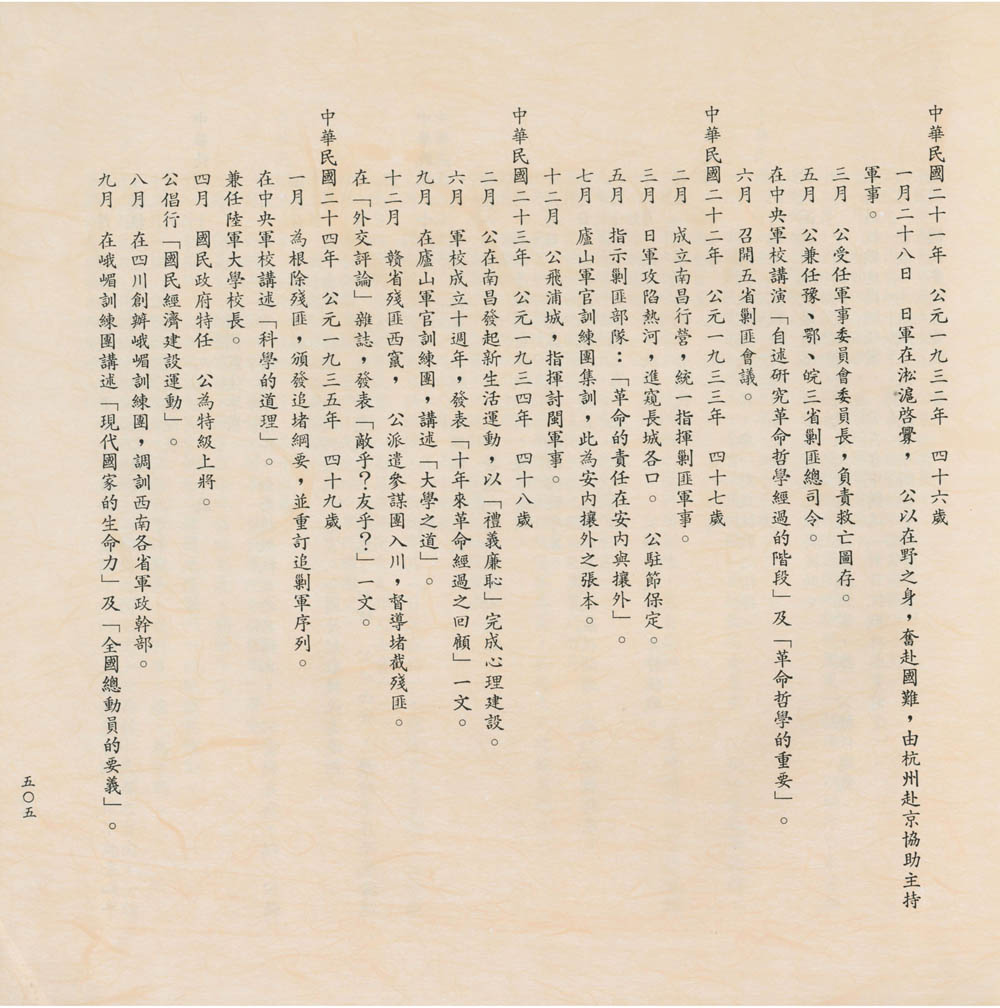 中華民國二十一年　公元一九三二年　四十六歲
一月二十八日　日軍在淞滬啓釁，　公以在野之身，奮赴國難，由杭州赴京協助主持
軍事。
三月　公受任軍事委員會委員長，負責救亡圖存。
五月　公兼任豫、鄂、皖三省剿匪總司令。
在中央軍校講演「自述研究革命哲學經過的階段」及「革命哲學的重要」。
六月　召開五省剿匪會議。
中華民國二十二年　公元一九三三年　四十七歲
二月　成立南昌行營，統一指揮剿匪軍事。
三月　日軍攻陷熱河，進窺長城各口。　公駐節保定。
五月　指示剿匪部隊：「革命的責任在安內與攘外」。
七月　廬山軍官訓練團集訓，此為安內攘外之張本。
十二月　公飛浦城，指揮討閩軍事。
中華民國二十三年　公元一九三四年　四十八歲
二月　公在南昌發起新生活運動，以「禮義廉恥」完成心理建設。
六月　軍校成立十週年，發表「十年來革命經過之回顧」一文。
九月　在廬山軍官訓練團，講述「大學之道」。
十二月　贛省殘匪西竄，　公派遣參謀團入川，督導堵截殘匪。
在「外交評論」雜誌，發表「敵乎？友乎？」一文。
中華民國二十四年　公元一九三五年　四十九歲
一月　為根除殘匪，頒發追堵綱要，並重訂追剿軍序列。
在中央軍校講述「科學的道理」。
兼任陸軍大學校長。
四月　國民政府特任　公為特級上將。
公倡行「國民經濟建設運動」。
八月　在四川創辦峨嵋訓練團，調訓西南各省軍政幹部。
九月　在峨嵋訓練團講述「現代國家的生命力」及「全國總動員的要義」。
五〇五